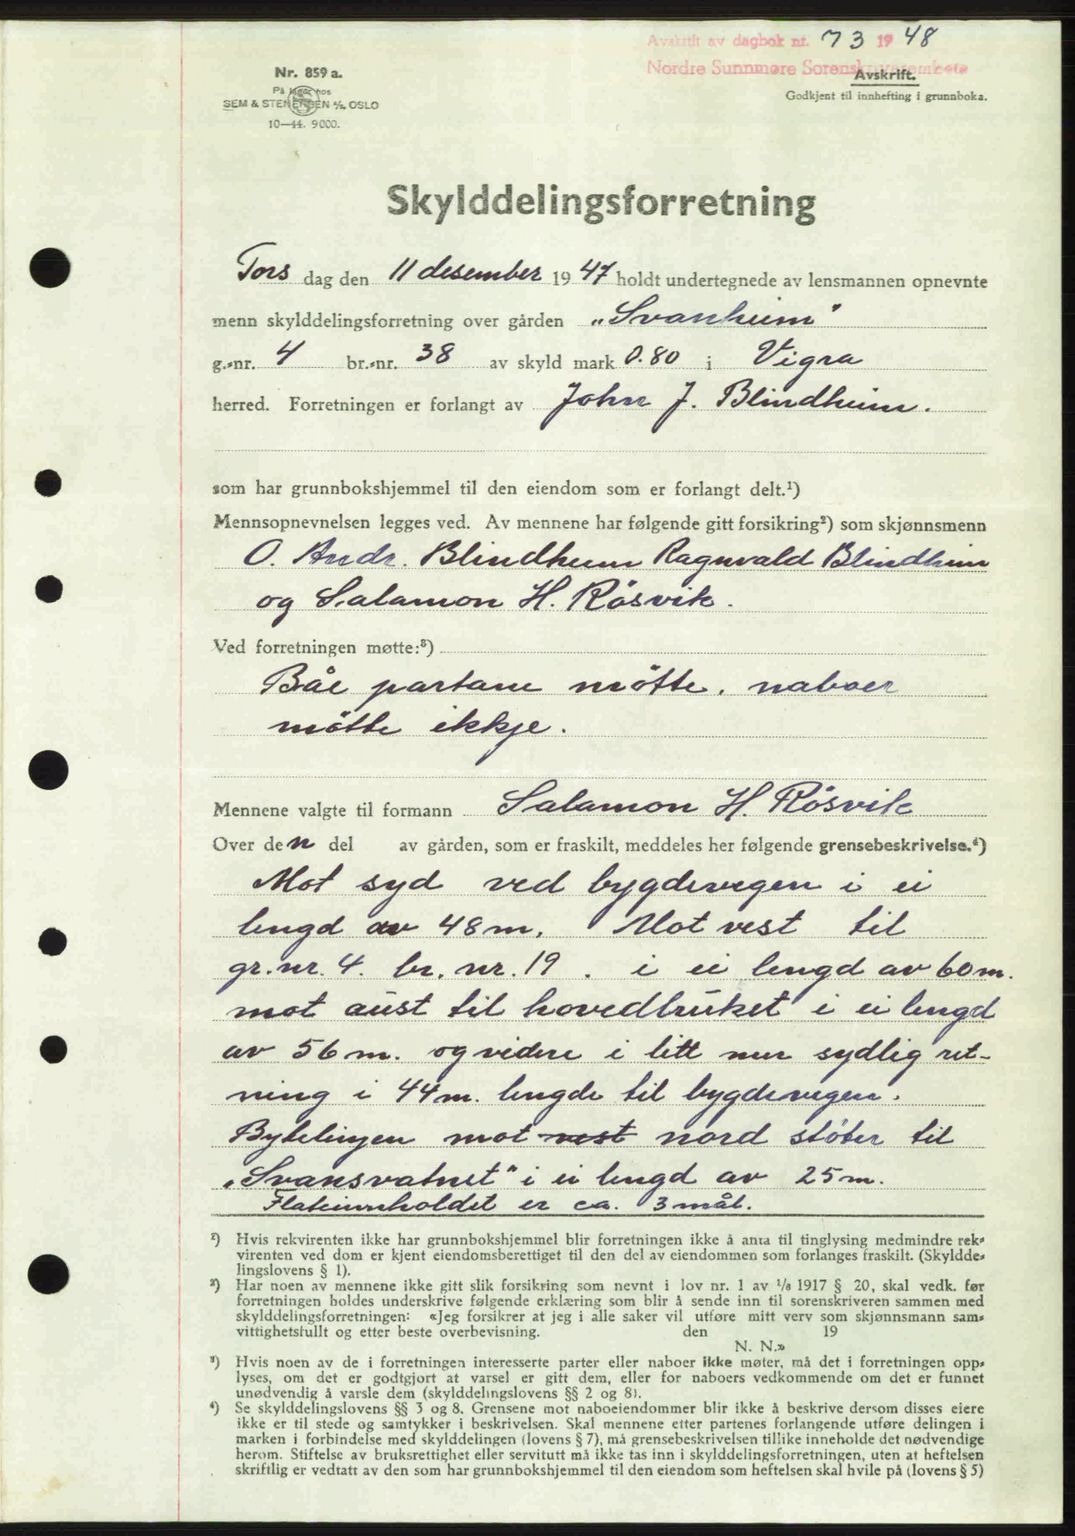 Avskrift av dagbok nr. 73 1948
Nordre Sunnmøre Sorenskriverembete
Nr. 859 a.
På lager hos
SEM & STENERSEN A/S, OSLO
10—44. 9000.
Avskrift.
Godkjent til innhefting i grunnboka.
Skylddelingsforretning
Tors dag den 11 desember 1947 holdt undertegnede av lensmannen opnevnte
menn skylddelingsforretning over gården „Svanheim"
g.-nr. 4 br.-nr. 38 av skyld mark 0.80 i Vigra
herred. Forretningen er forlangt av John J. Blindheim.
som har grunnbokshjemmel til den eiendom som er forlangt delt.¹)
Mennsopnevnelsen legges ved. Av mennene har følgende gitt forsikring²) som skjønnsmenn
O. Andr. Blindheim Ragnvald Blindheim
og Salamon H. Rösvik.
Ved forretningen møtte:³)
Båe partane mötte. naboer
mötte ikkje.
Mennene valgte til formann Salamon H. Rösvik
Over den del av gården, som er fraskilt, meddeles her følgende grensebeskrivelse.⁴)
Mot syd ved bygdevegen i ei
lengd av 48 m. Mot vest til
gr. nr. 4. br. nr. 19. i ei lengd av 60 m.
mot aust til hovedbruket i ei lengd
av 56 m. og videre i litt mer sydlig ret-
ning i 44 m. lengde til bygdevegen.
Bytelinjen mot vest nord stöter til
„Svansvatnet" i ei lengd av 25 m.
Flateinnholdet er ca. 3 mål.
¹) Hvis rekvirenten ikke har grunnbokshjemmel blir forretningen ikke å anta til tinglysing medmindre rek-
virenten ved dom er kjent eiendomsberettiget til den del av eiendommen som forlanges fraskilt. (Skyldde-
lingslovens § 1).
²) Har noen av mennene ikke gitt slik forsikring som nevnt i lov nr. 1 av 1/8 1917 § 20, skal vedk. før
forretningen holdes underskrive følgende erklæring som blir å sende inn til sorenskriveren sammen med
skylddelingsforretningen: «Jeg forsikrer at jeg i alle saker vil utføre mitt verv som skjønnsmann sam-
vittighetsfullt og etter beste overbevisning. den 19
N. N.»
³) Hvis noen av de i forretningen interesserte parter eller naboer ikke møter, må det i forretningen opp-
lyses, om det er godtgjort at varsel er gitt dem, eller for naboers vedkommende om det er funnet
unødvendig å varsle dem (skylddelingslovens §§ 2 og 8).
⁴) Se skylddelingslovens §§ 3 og 8. Grensene mot naboeiendommer blir ikke å beskrive dersom disses eiere
ikke er til stede og samtykker i beskrivelsen. Skal mennene etter partenes forlangende utføre delingen i
marken i forbindelse med skylddelingen (lovens § 7), må grensebeskrivelsen tillike inneholde det nødvendige
herom. Stiftelse av bruksrettighet eller servitutt må ikke tas inn i skylddelingsforretningen, uten at heftelsen
skriftlig er vedtatt av den som har grunnbokshjemmel til den eiendom som heftelsen skal hvile på (lovens § 5)